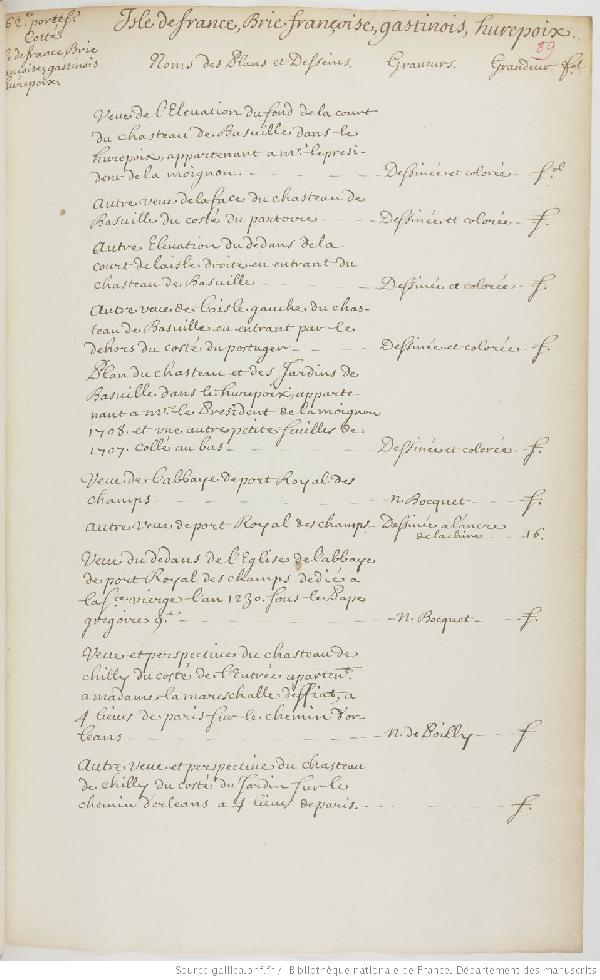 62.e portef.
Cotté
Isle de france, Brie
francoise, gastinois
hurepoix.
Isle de france, Brie françoise, gastinois, hurepoix.
89
Noms des Plans et Desseins. Graveurs. Grandeur fol.
Veue de l'Elevation du fond de la court
du chasteau de Basuille dans le
hurepoix, appartenant a mr. le presi-
dent de la moignon. Dessinée et colorée fol
Autre veue de la face du chasteau de
Basuille du costé du partoire Dessinée et colorée f.
Autre Elevation du dedans de la
court de laisle droite en entrant du
chasteau de Basuille Dessinée et colorée f.
Autre veue de l'aisle gauche du chas-
teau de Basuille en entrant par le
dehors du costé du portager Dessinée et colorée f.
Plan du chasteau et des Jardins de
Basuille dans le hurepoix, apparte-
nant a mr. le President de lamoignon
1708. et vne autre petite feuilles de
1707. collé au bas Dessinée et colorée f.
Veue de l'abbaye de port Royal des
champs n. Bocquet f.
Autre Veue de port Royal des champs Dessinée a l'ancre
de la chine 16.
Veue du dedans de l'Eglise de l'abbaye
de port Royal des champs dedié a
la ste. vierge l'an 1230. sous le Pape
gregoire 9e. n. Bocquet f.
Veue et perspective du chasteau de
chilly du costé de l'Entrée apartent.
a madame la mareschalle d'effiat, a
4 lieues de paris sur le chemin d'or
leans n. de Poilly f
Autre veue et perspective du chasteau
de chilly du costé du Jardin sur le
chemin d'orleans a 4 lieues de paris. f.
Source gallica.bnf.fr / Bibliothèque nationale de France. Département des manuscrits